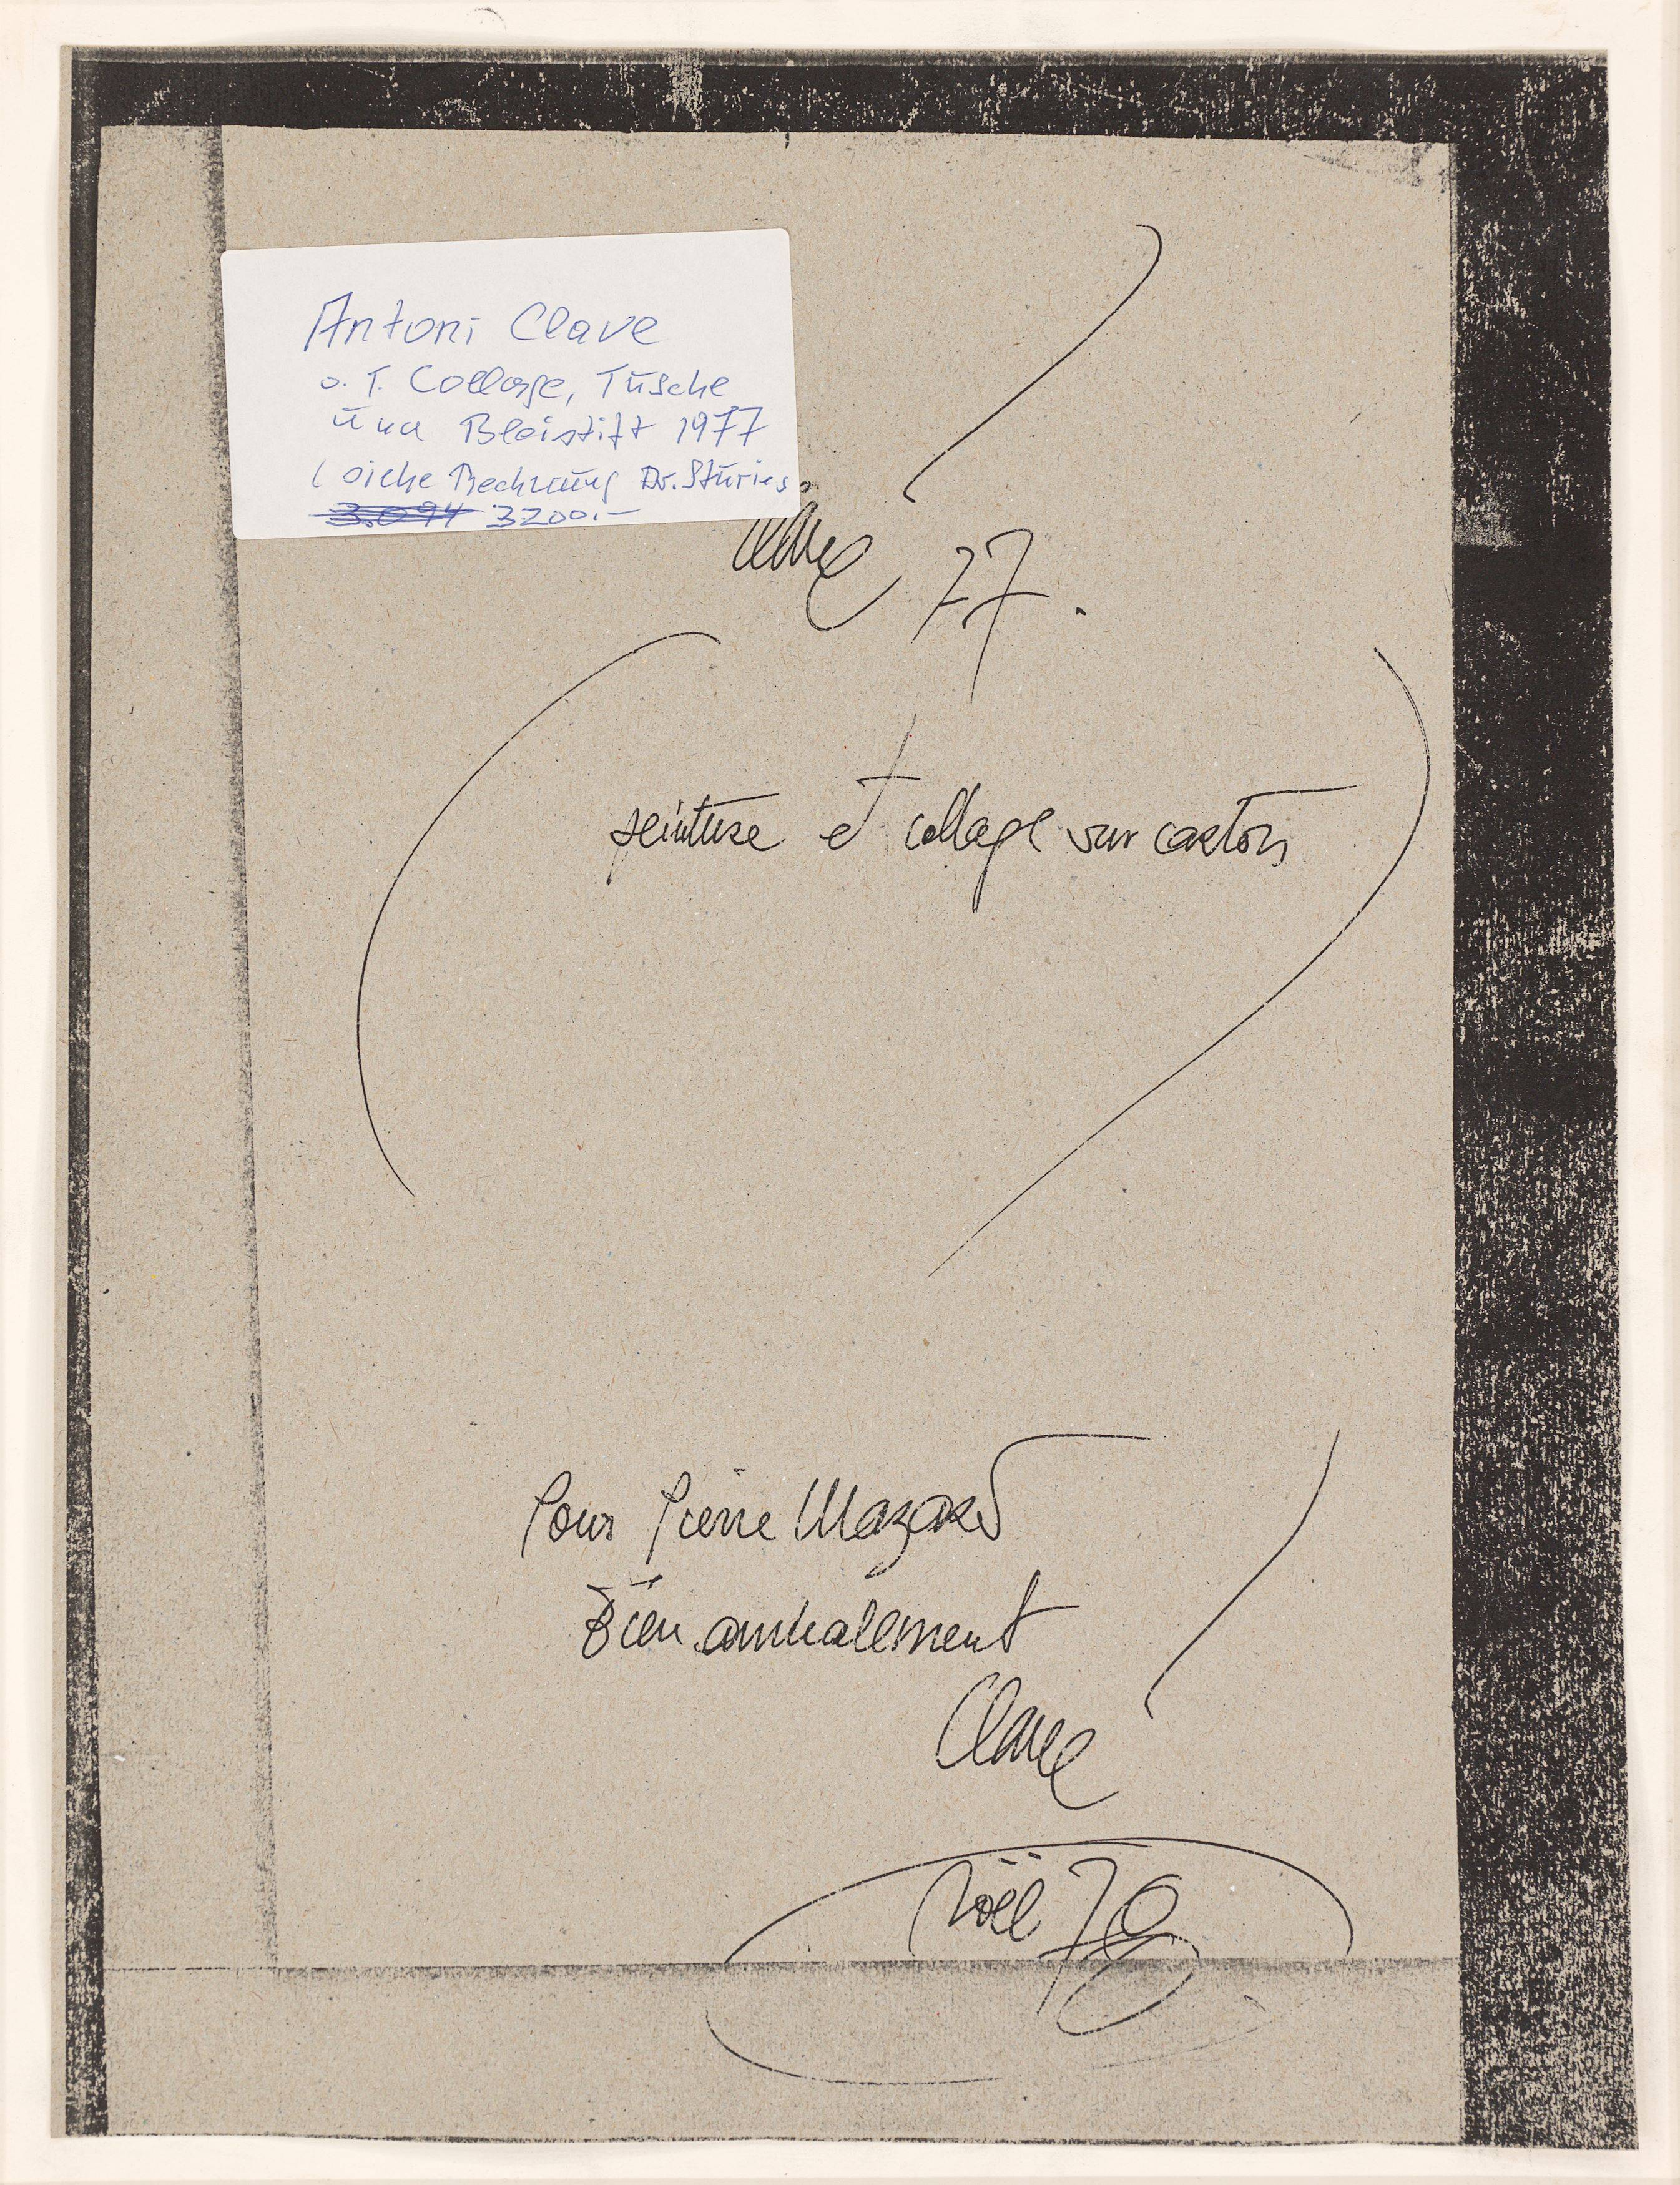 Antoni Clave
o. T. Collage, Tusche
und Bleistift 1977
(siehe Rechnung Dr. Sturies
3.094 3200.-
Clavé 77.
peinture et collage sur carton
Pour Pierre Mazars
Bien amicalement
Clavé
Noël 78